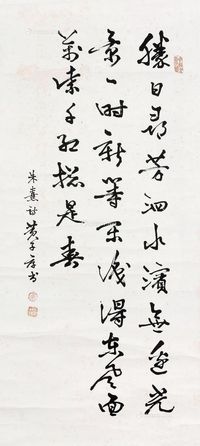 胜日寻芳泗水滨无边光
景一时新等闲识得东风面
万紫千红总是春
朱熹诗 黄子厚书